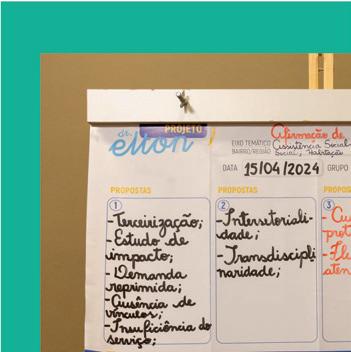 PROJETO
dr. elton
EIXO TEMÁTICO
BAIRRO/REGIÃO
Afirmação de,
Assistência Social
Social, Habitação
DATA 15/04/2024 GRUPO
PROPOSTAS
1
-Terceirização;
-Estudo de
impacto;
-Demanda
reprimida;
-Ausência de
vínculos;
-Insuficiência do
serviço;
PROPOSTAS
2
-Intersetoriali-
dade;
-Transdiscipli
naridade;
PROPOS
3